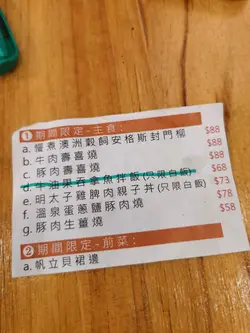 1 期間限定-主食：
a. 慢煮澳洲穀飼安格斯封門柳 $88
b. 牛肉壽喜燒 $88
c. 豚肉壽喜燒 $88
d. 牛油果吞拿魚拌飯(只限白飯) $68
e. 明太子雞脾肉親子丼(只限白飯) $73
f. 溫泉蛋蔥鹽豚肉燒 $78
g. 豚肉生薑燒 $58
2 期間限定-前菜：
a. 帆立貝裙邊